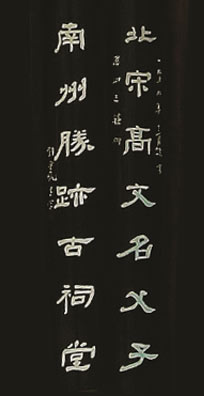 北宋高文名父子
南州勝跡古祠堂